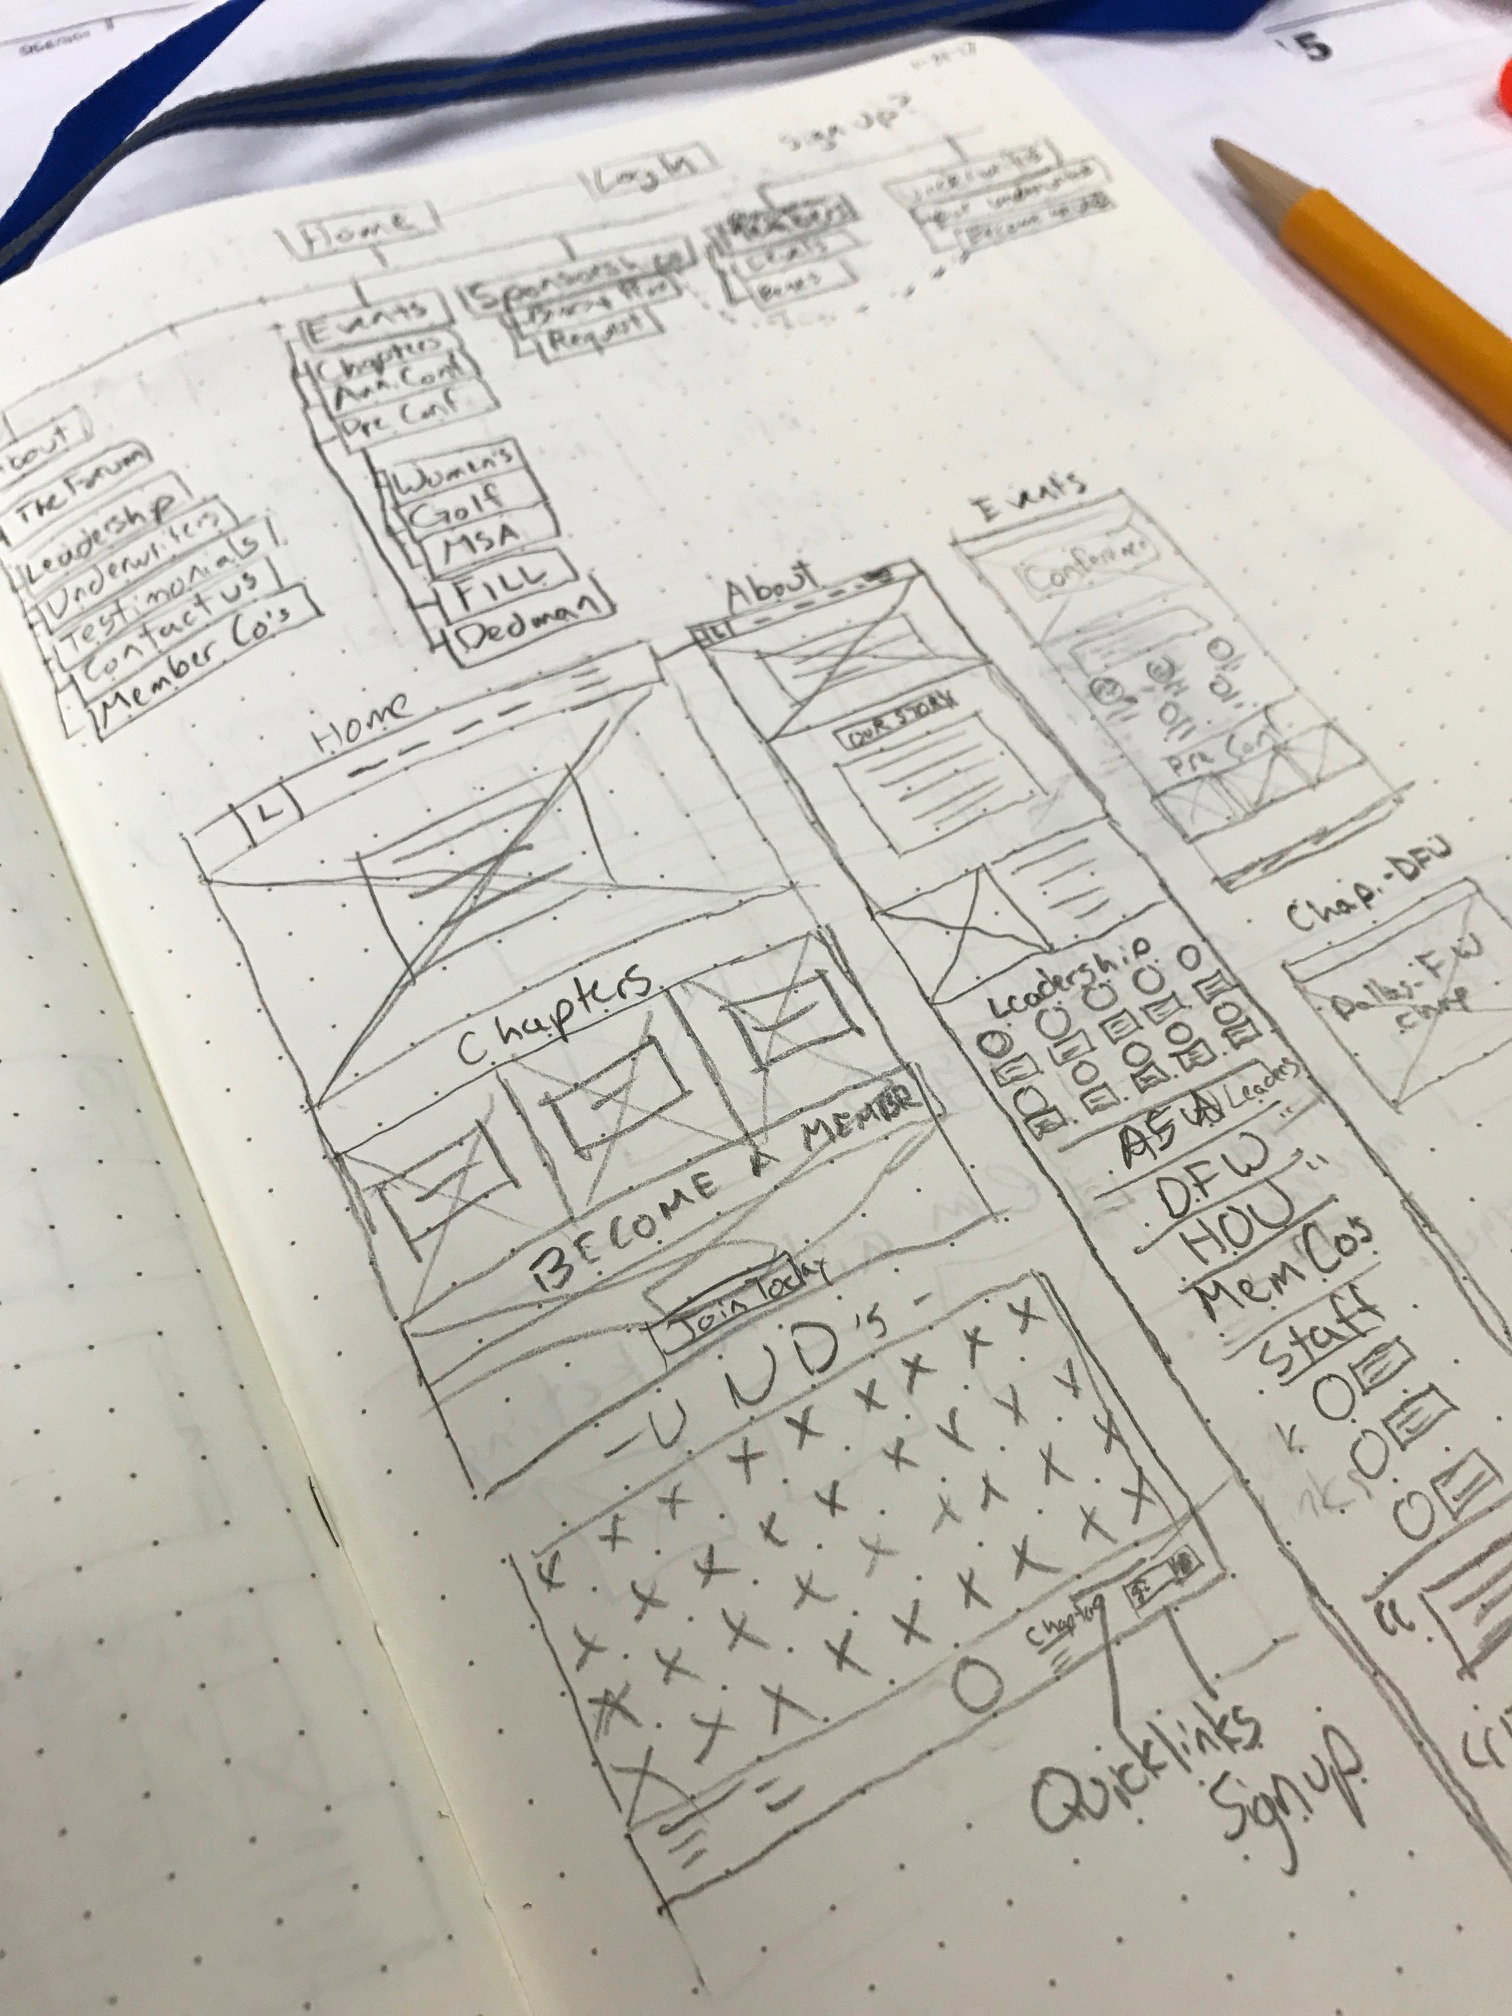 5
Sign Up?
Log In
Home
Events
Chapters
Ann. Conf
Pre Conf
Women's
Golf
MSA
FILL
Dedman
Sponsorships
Request
Levels
About
The Forum
Leadership
Underwriters
Testimonials
Contact us
Member Co's
Home
L
Chapters
BECOME A MEMBER
Join Today
- UND's -
Chapters
Quicklinks
Sign up
About
OUR STORY
Leadership
Leaders
DFW "
HOU "
Mem Co's
Staff
Events
Conference
Pre Conf
Chap. - DFW
Dallas-FW
Chap